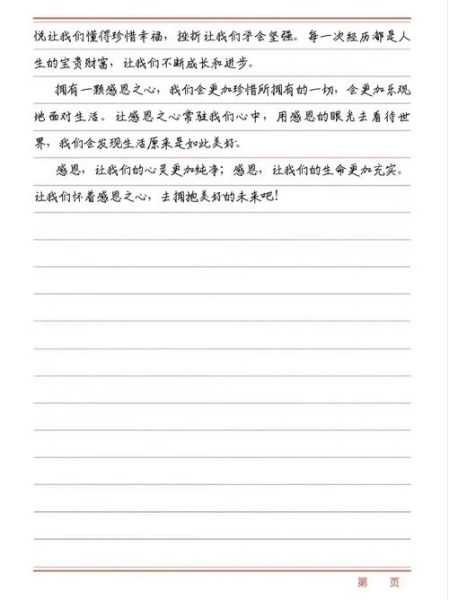 悦让我们懂得珍惜幸福，挫折让我们学会坚强。每一次经历都是人
生的宝贵财富，让我们不断成长和进步。
拥有一颗感恩之心，我们会更加珍惜所拥有的一切，会更加乐观
地面对生活。让感恩之心常驻我们心中，用感恩的眼光去看待世
界，我们会发现生活原来是如此美好。
感恩，让我们的心灵更加纯净；感恩，让我们的生命更加充实。
让我们怀着感恩之心，去拥抱美好的未来吧！
第 页